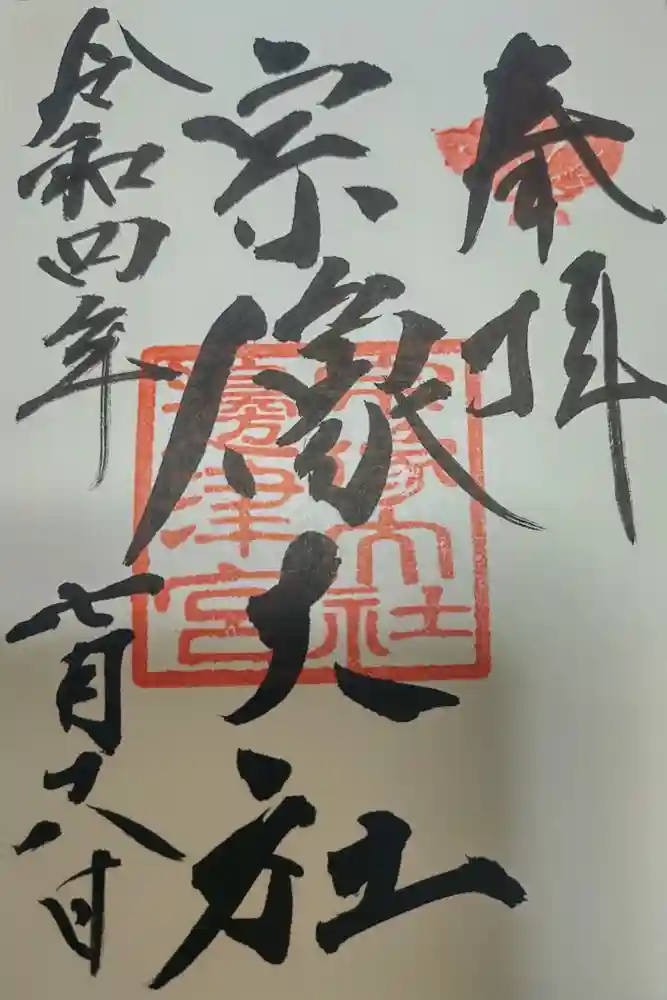 奉拝
宗像大社
宗像大社
邊津宮
令和四年
七月十八日